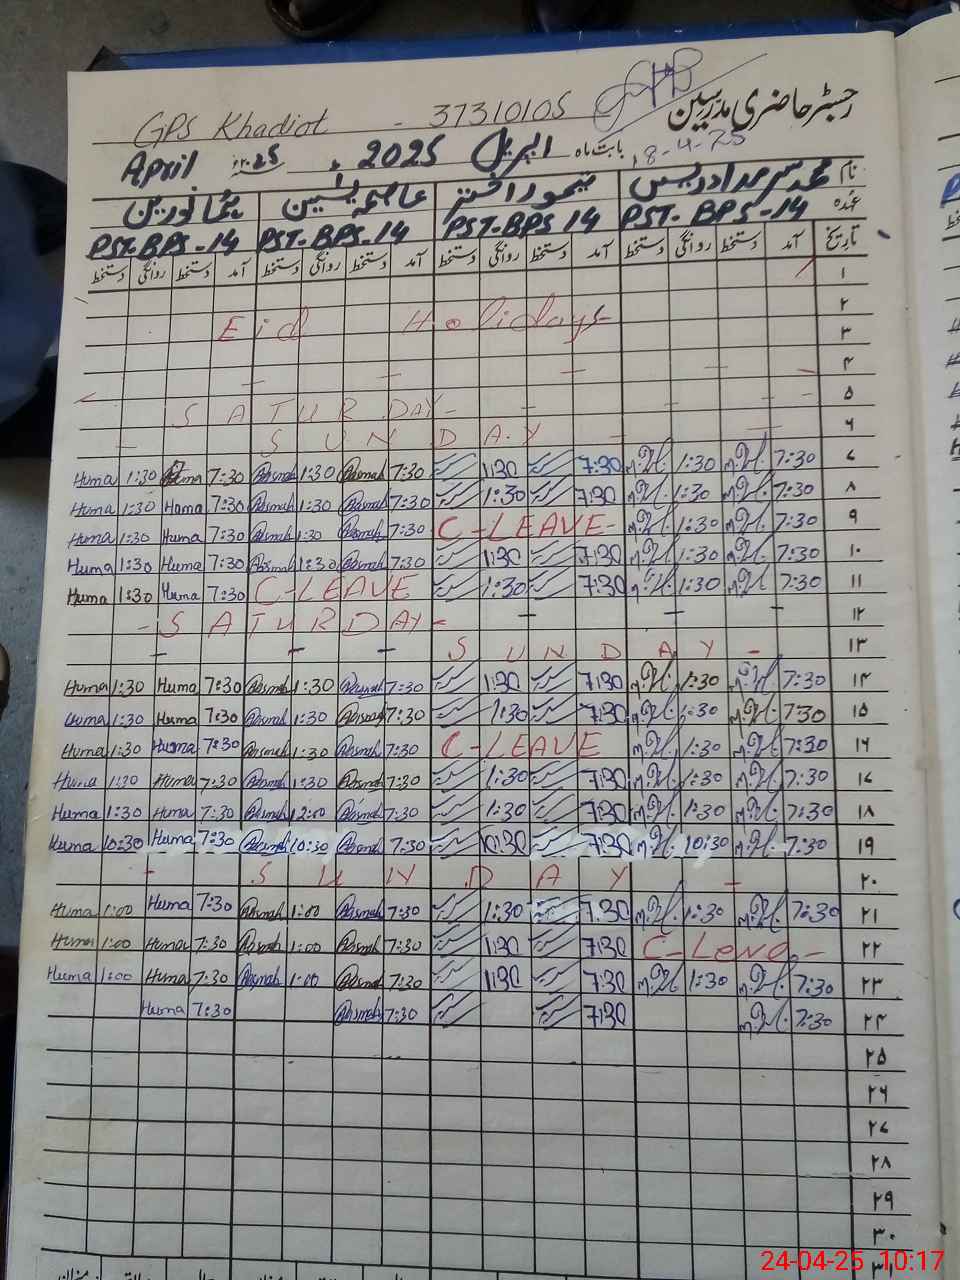 رجسٹر حاضری مدرسین
GPS Khadiot - 37310105
April 2025 اپریل بابت ماہ 18-4-25
نام محمد سرمد ادریس تیمور اختر عاصمہ یٰسین ہما نورین
عہدہ PST-BPS-14 PST-BPS 14 PST-BPS-14 PST-BPS-14
تاریخ آمد دستخط روانگی دستخط آمد دستخط روانگی دستخط آمد دستخط روانگی دستخط آمد دستخط روانگی دستخط
۱
۲
Eid Holidays ۳
۴
SATURDAY ۵
SUNDAY ۶
Huma 1:30 Huma 7:30 Asmah 1:30 Asmah 7:30 1:30 7:30 1:30 7:30 ۷
Huma 1:30 Huma 7:30 Asmah 1:30 Asmah 7:30 1:30 7:30 1:30 7:30 ۸
Huma 1:30 Huma 7:30 Asmah 1:30 Asmah 7:30 C-LEAVE- 1:30 7:30 ۹
Huma 1:30 Huma 7:30 Asmah 1:30 Asmah 7:30 1:30 7:30 1:30 7:30 ۱۰
Huma 1:30 Huma 7:30 C-LEAVE 1:30 7:30 1:30 7:30 ۱۱
- SATURDAY- ۱۲
SUNDAY - ۱۳
Huma 1:30 Huma 7:30 Asmah 1:30 Asmah 7:30 1:30 7:30 1:30 7:30 ۱۴
Huma 1:30 Huma 7:30 Asmah 1:30 Asmah 7:30 1:30 7:30 1:30 7:30 ۱۵
Huma 1:30 Huma 7:30 Asmah 1:30 Asmah 7:30 C-LEAVE 1:30 7:30 ۱۶
Huma 1:30 Huma 7:30 Asmah 1:30 Asmah 7:30 1:30 7:30 1:30 7:30 ۱۷
Huma 1:30 Huma 7:30 Asmah 12:00 Asmah 7:30 1:30 7:30 1:30 7:30 ۱۸
Huma 10:30 Huma 7:30 Asmah 10:30 Asmah 7:30 10:30 7:30 10:30 7:30 ۱۹
- SUNDAY - ۲۰
Huma 1:00 Huma 7:30 Asmah 1:00 Asmah 7:30 1:30 7:30 1:30 7:30 ۲۱
Huma 1:00 Huma 7:30 Asmah 1:00 Asmah 7:30 1:30 7:30 C-Leave- ۲۲
Huma 1:00 Huma 7:30 Asmah 1:00 Asmah 7:30 1:30 7:30 1:30 7:30 ۲۳
Huma 7:30 Asmah 7:30 7:30 7:30 ۲۴
۲۵
۲۶
۲۷
۲۸
۲۹
۳۰
۳۱
24-04-25 10:17